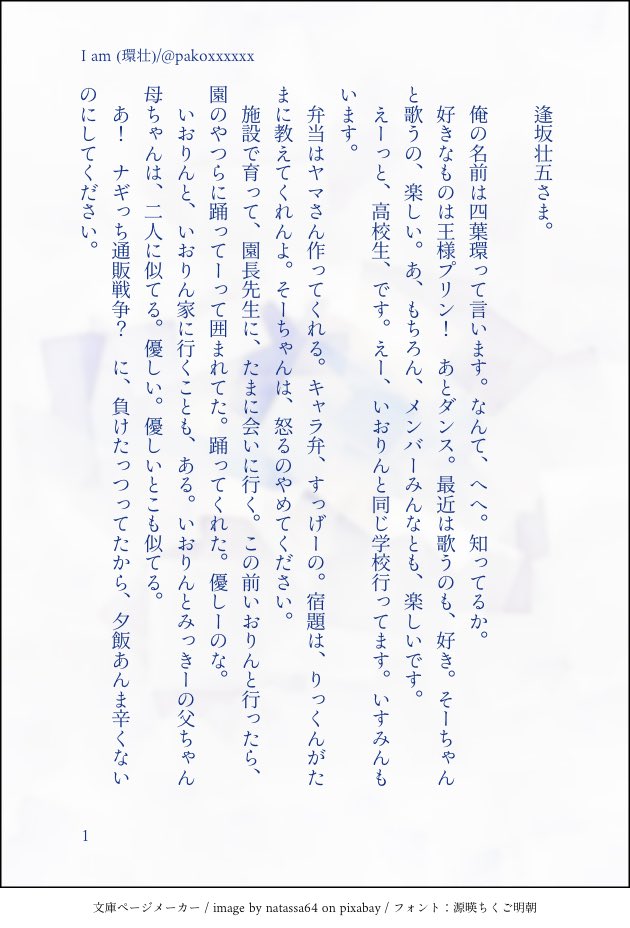 I am (環壮)/@pakoxxxxxx
逢坂壮五さま。
俺の名前は四葉環って言います。なんて、へへ。知ってるか。
好きなものは王様プリン！　あとダンス。最近は歌うのも、好き。そーちゃん
と歌うの、楽しい。あ、もちろん、メンバーみんなとも、楽しいです。
えーっと、高校生、です。えー、いおりんと同じ学校行ってます。いすみんも
います。
弁当はヤマさん作ってくれる。キャラ弁、すっげーの。宿題は、りっくんがた
まに教えてくれんよ。そーちゃんは、怒るのやめてください。
施設で育って、園長先生に、たまに会いに行く。この前いおりんと行ったら、
園のやつらに踊ってーって囲まれてた。踊ってくれた。優しーのな。
いおりんと、いおりん家に行くことも、ある。いおりんとみっきーの父ちゃん
母ちゃんは、二人に似てる。優しい。優しいとこも似てる。
あ！　ナギっち通販戦争？　に、負けたっつってたから、夕飯あんま辛くない
のにしてください。
1
文庫ページメーカー / image by natassa64 on pixabay / フォント：源暎ちくご明朝